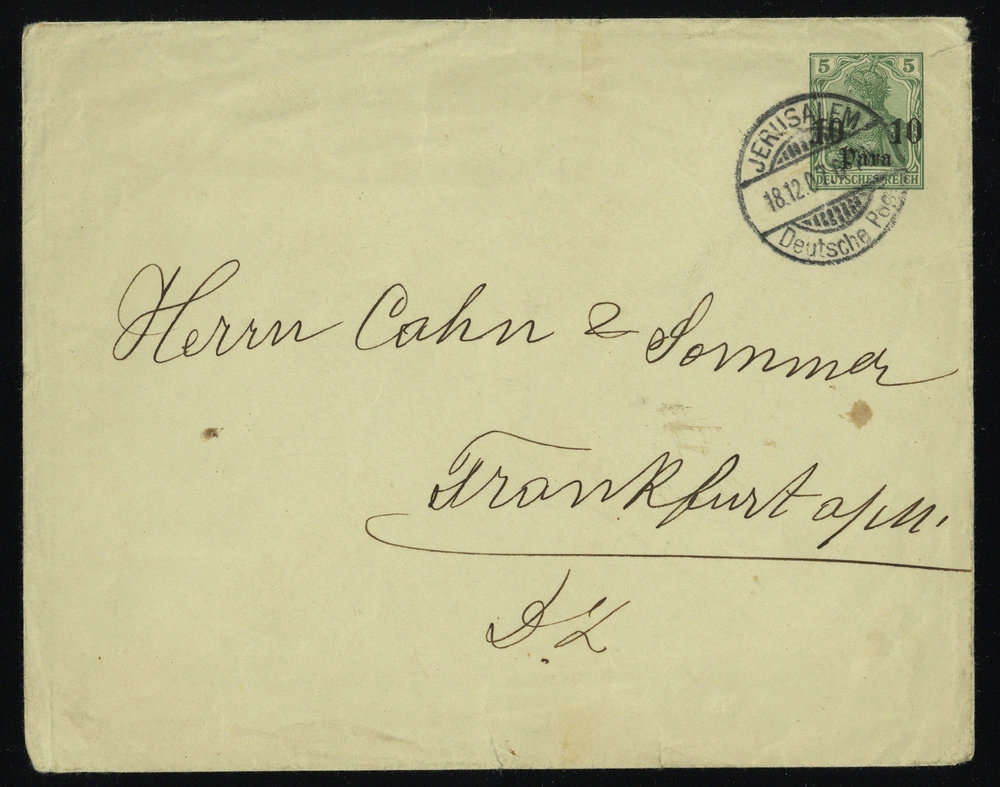 5 5
10 10
Para
DEUTSCHES REICH
JERUSALEM
18.12.0
Deutsche Post
Herrn Cahn & Sommer
Frankfurt a/M.